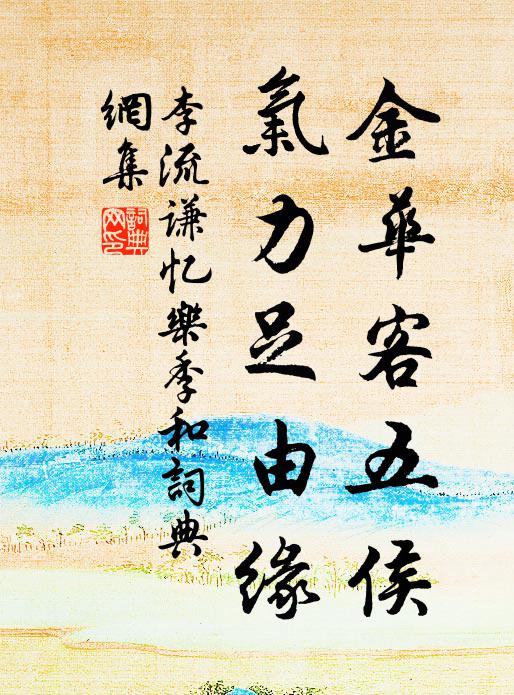 金華客五侯
氣力足由緣
李流謙忆樂季和詞典
網集
詞典
网印